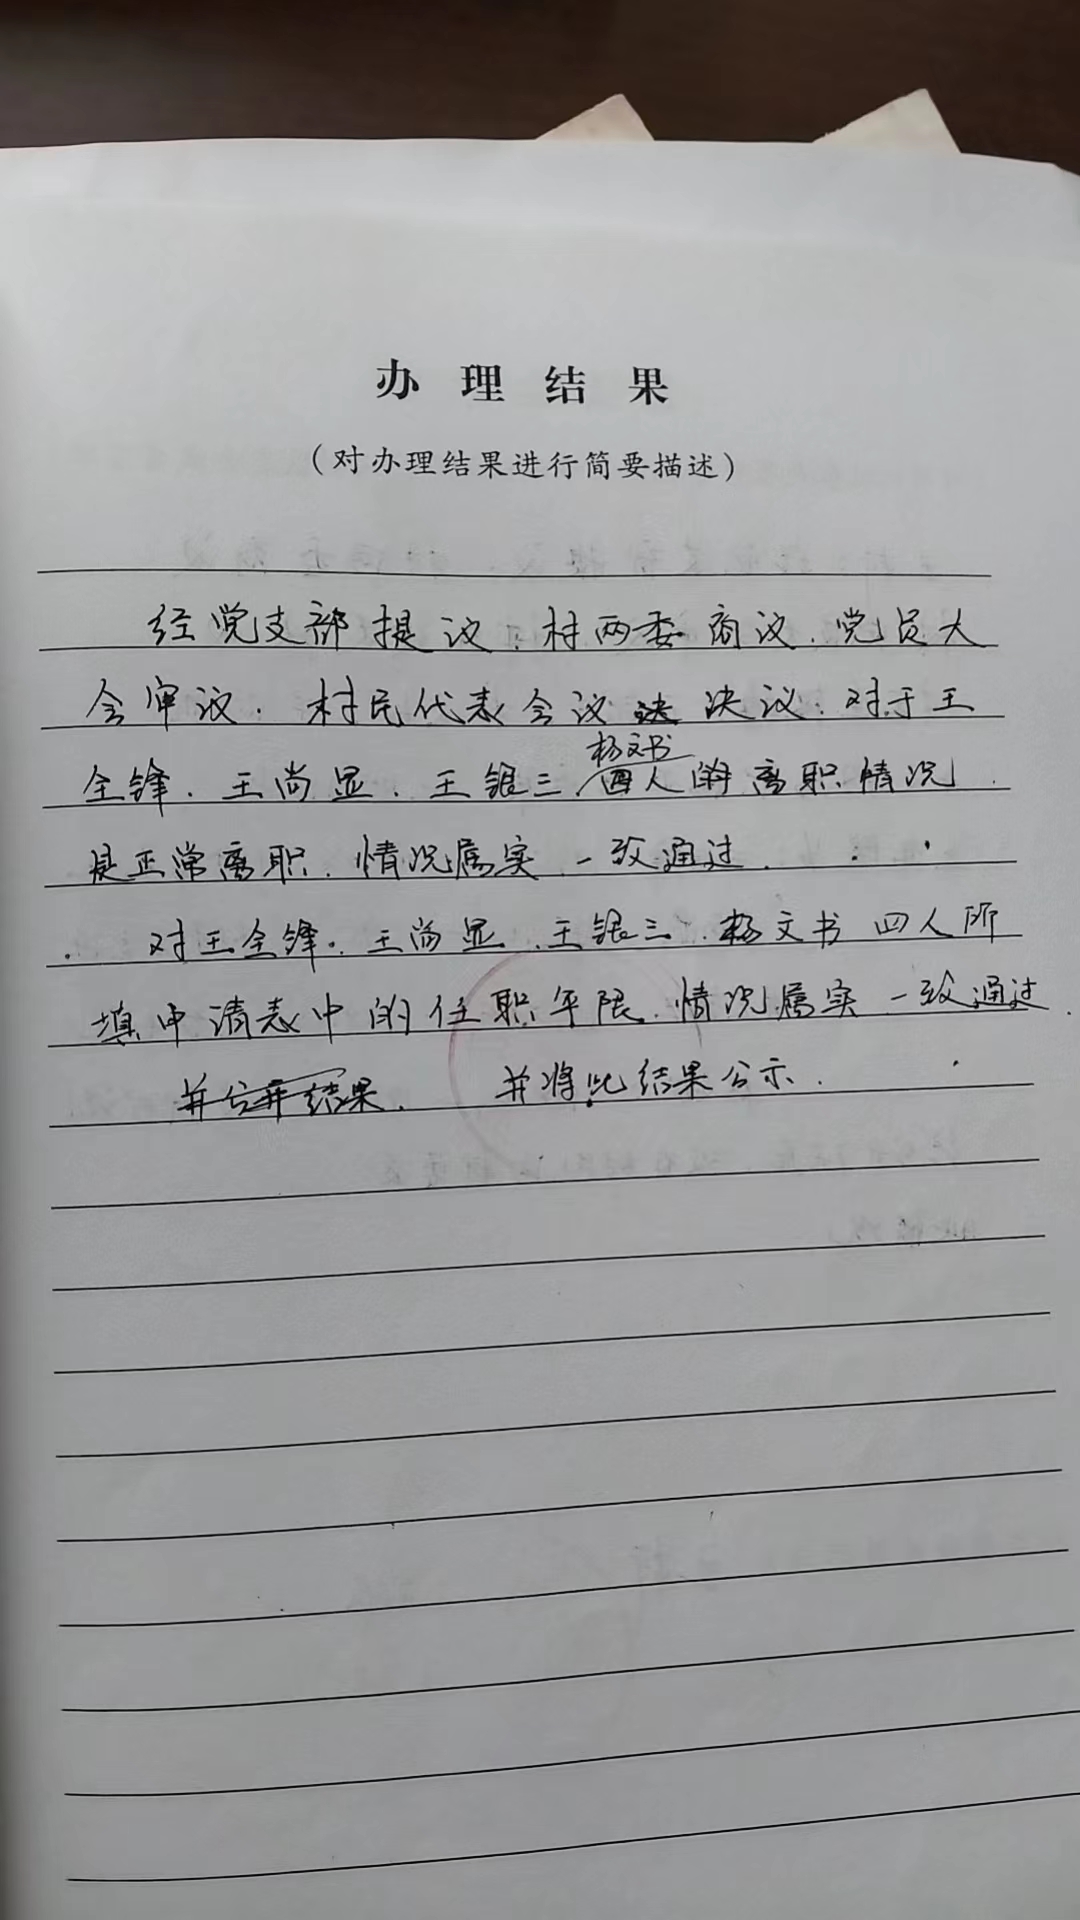 办理结果
(对办理结果进行简要描述)
经党支部提议、村两委商议、党员大
会审议、村民代表会议决议：对于王
全锋、王尚显、王银三、杨文书四人的离职情况
是正常离职、情况属实、一致通过、
对王全锋、王尚显、王银三、杨文书四人所
填申请表中的任职年限、情况属实、一致通过、
并将此结果公示、